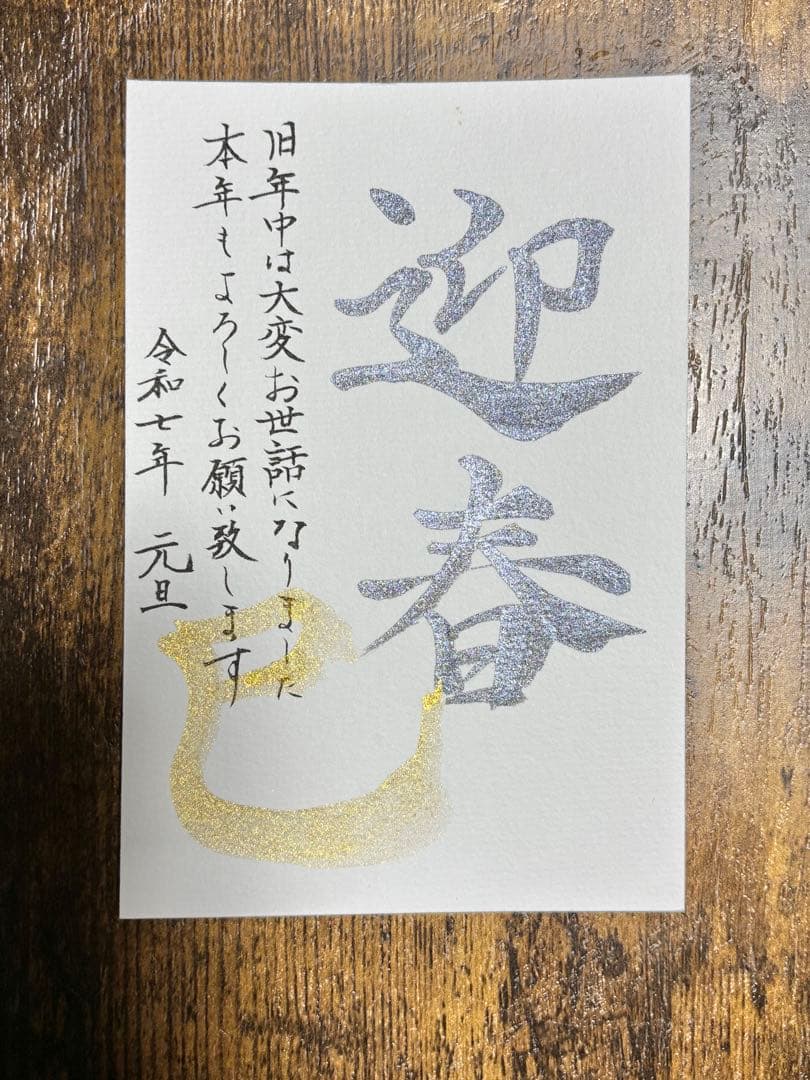 迎春
旧年中は大変お世話になりました
本年もよろしくお願い致します
令和七年 元旦
巳